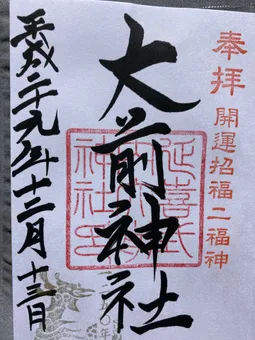 奉拝
開運招福二福神
大前神社
延喜式
神社
平成二十九年十二月十三日